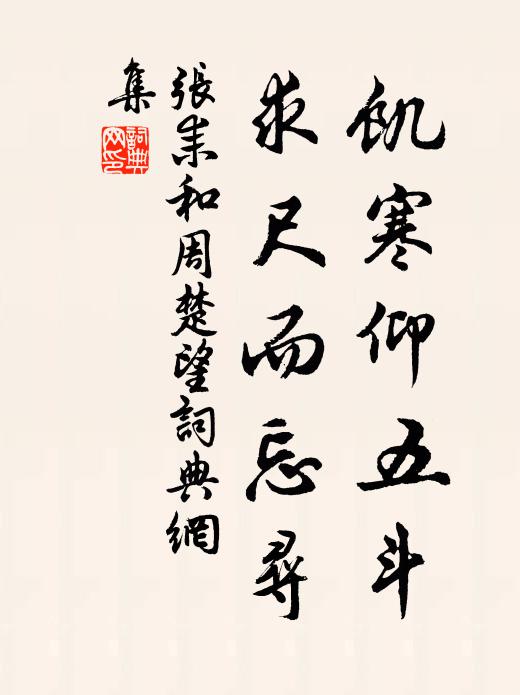 飢寒仰五斗
求尺而忘尋
張耒和周楚望詞典網
集
詞典網印